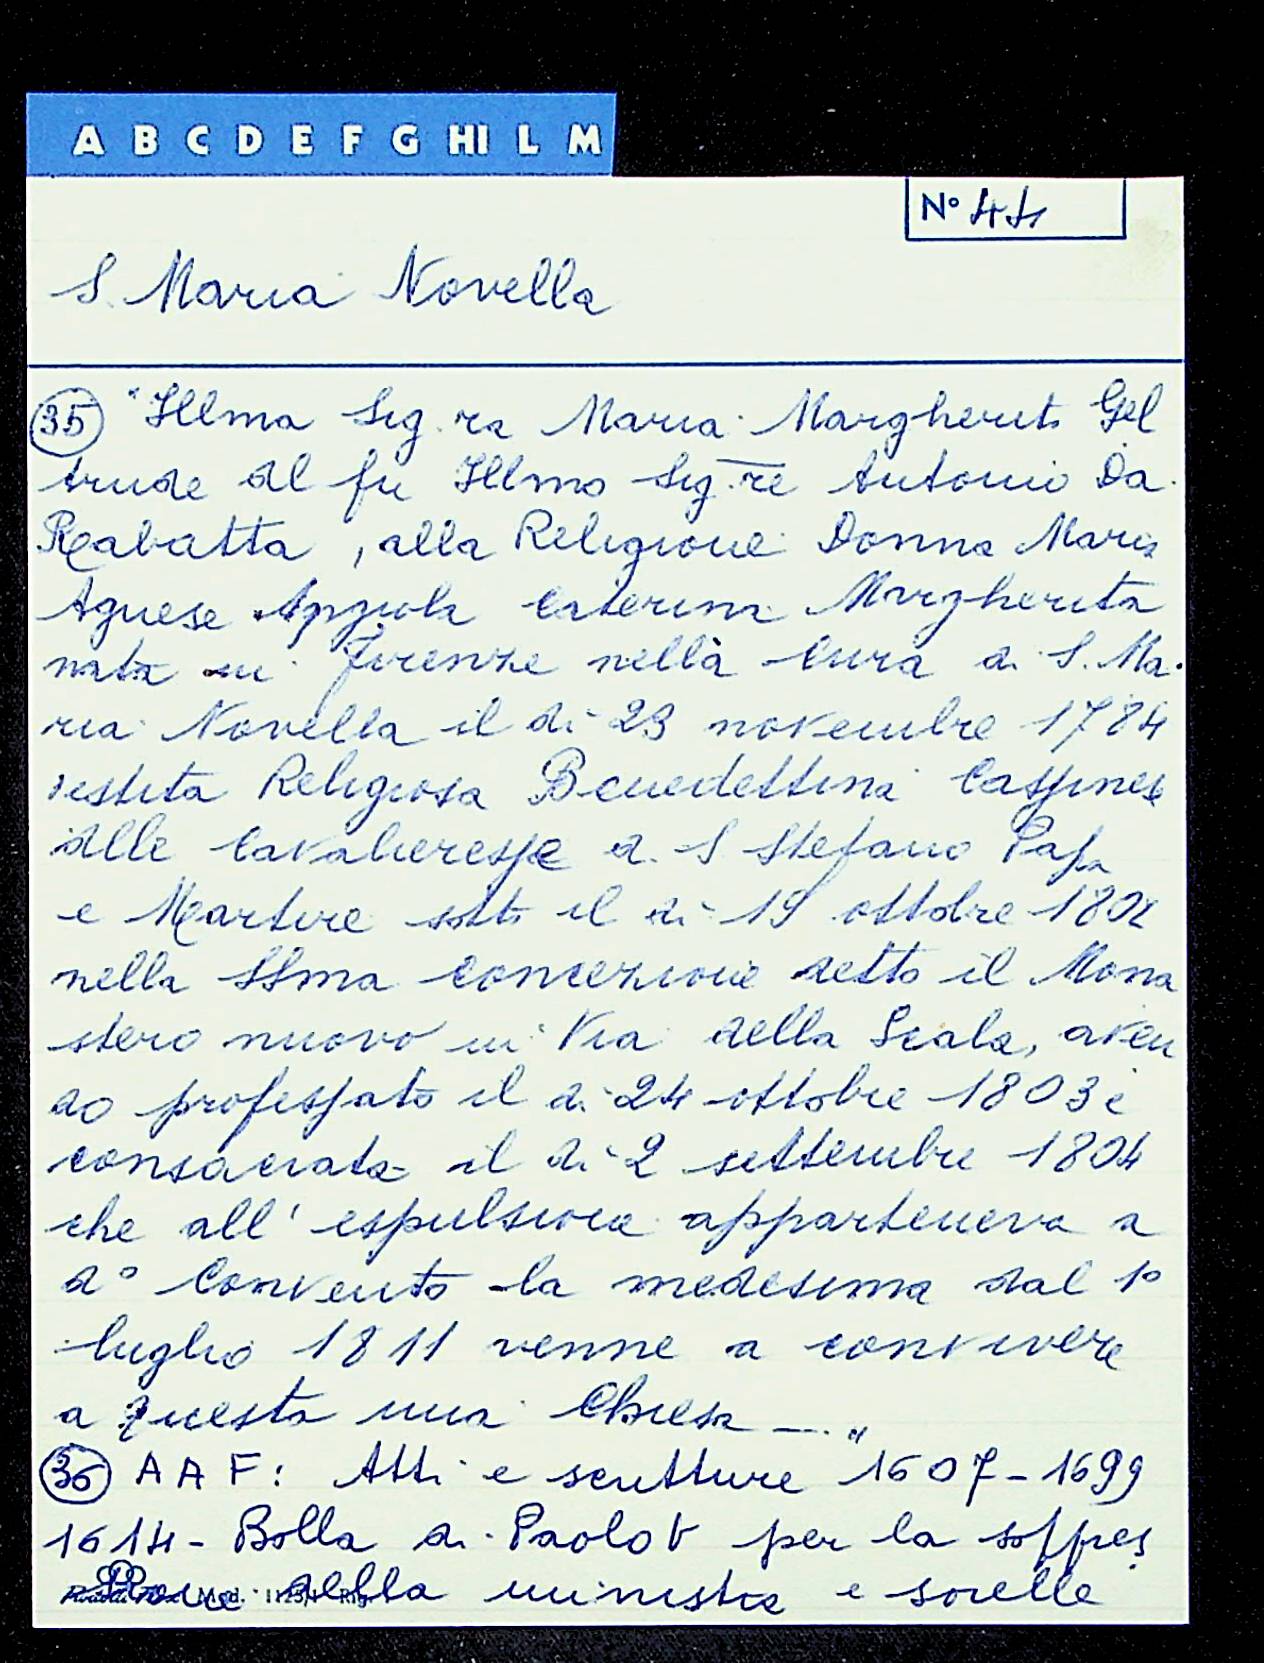 A B C D E F G HI L M
N° 44
S. Maria Novella
35 "Illma Sig.ra Maria Margherita Gel
trude del fu Illmo Sig.re Antonio Da
Rabatta, alla Religione Donna Maria
Agnese Angiola Caterina Margherita
nata in Firenze nella Cura di S. Ma
ria Novella il di 23 novembre 1784
vestita Religiosa Benedettina Cassinese
delle Cavalieresse di S Stefano Papa
e Martire sotto il di 19 ottobre 1802
nella SSma Concezione detto il Mona
stero nuovo in Via della Scala, aven
do professato il di 24 ottobre 1803 e
consacrata il di 2 settembre 1804
che all'espulsione apparteneva a
d° Convento la medesima dal 1°
luglio 1811 venne a convivere
a questa mia Chiesa —."
36 A A F: Atti e scritture 1607-1699
1614 - Bolla di Paolo V per la soppres
sione della ministra e sorelle
Mod. 1125/1 Rig